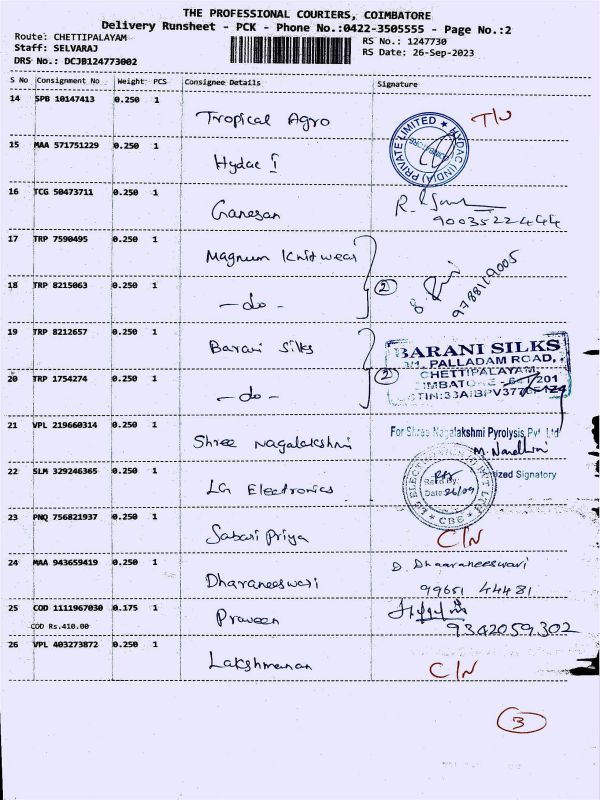 THE PROFESSIONAL COURIERS, COIMBATORE
Delivery Runsheet - PCK - Phone No.:0422-3505555 - Page No.:2
Route: CHETTIPALAYAM
Staff: SELVARAJ
DRS No.: DCJB124773002
RS No.: 1247730
RS Date: 26-Sep-2023
S No Consignment No Weight PCS Consignee Details Signature
14 SPB 10147413 0.250 1 Tropical Agro T/U
15 MAA 571751229 0.250 1 Hydac I
HYDAC (INDIA) PRIVATE LIMITED
16 TCG 50473711 0.250 1 Ganesan
9003522444
17 TRP 7590495 0.250 1 Magnum Knitwear
18 TRP 8215063 0.250 1 -do- 2
9788119005
19 TRP 8212657 0.250 1 Barani Silks
20 TRP 1754274 0.250 1 -do- 2
BARANI SILKS
PALLADAM ROAD,
CHETTIPALAYAM,
21 VPL 219660314 0.250 1 Shree Nagalakshmi
For Shree Nagalakshmi Pyrolysis Pvt Ltd
M. Nandhini
Signatory
22 SLM 329246365 0.250 1 LG Electronics
Recd By:
Date: 26/09
CBE
23 PNQ 756821937 0.250 1 Sabari Priya C/N
24 MAA 943659419 0.250 1 Dharaneeswari D. Dhaaraneeswari
99651 44481
25 COD 1111967030 0.175 1 Praveen
COD Rs.410.00
9342059302
26 VPL 403273872 0.250 1 Lakshmanan C/N
3